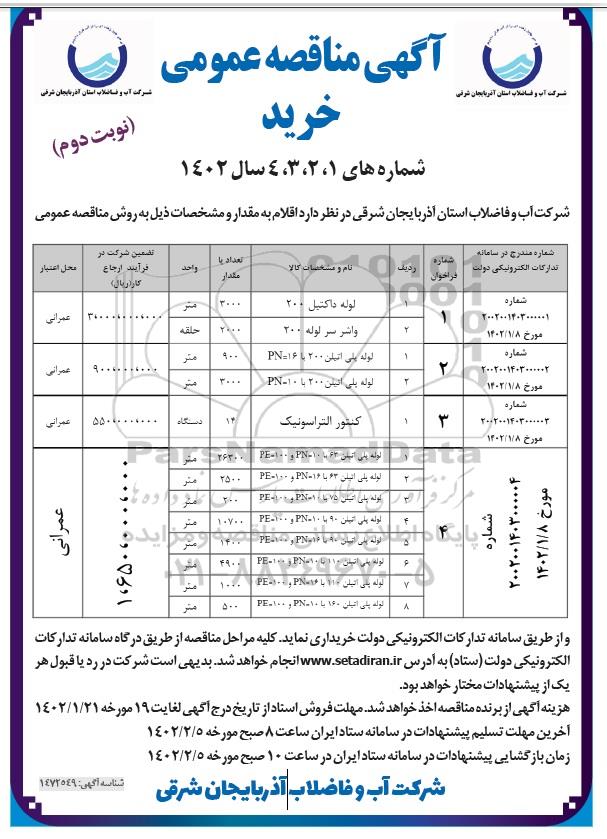 آگهی مناقصه عمومی
خرید
(نوبت دوم)
شرکت آب و فاضلاب استان آذربایجان شرقی
شرکت آب و فاضلاب استان آذربایجان شرقی
شماره های ۴،۳،۲،۱ سال ۱۴۰۲
شرکت آب و فاضلاب استان آذربایجان شرقی در نظر دارد اقلام به مقدار و مشخصات ذیل به روش مناقصه عمومی
شماره مندرج در سامانه تدارکات الکترونیکی دولت | شماره فراخوان | ردیف | نام و مشخصات کالا | تعداد یا مقدار | واحد | تضمین شرکت در فرآیند ارجاع کار(ریال) | محل اعتبار
شماره ۲۰۰۲۰۰۱۴۰۳۰۰۰۰۰۱ مورخ ۱۴۰۲/۱/۸ | ۱ | ۱ | لوله داکتیل ۲۰۰ | ۳۰۰۰ | متر | عمرانی
۲ | واشر سر لوله ۲۰۰ | ۲۰۰۰ | حلقه
شماره ۲۰۰۲۰۰۱۴۰۳۰۰۰۰۰۲ مورخ ۱۴۰۲/۱/۸ | ۲ | ۱ | لوله پلی اتیلن ۲۰۰ با PN=۱۶ | ۹۰۰ | متر | عمرانی
۲ | لوله پلی اتیلن ۲۰۰ با PN=۱۰ | ۳۰۰۰ | متر
شماره ۲۰۰۲۰۰۱۴۰۳۰۰۰۰۰۳ مورخ ۱۴۰۲/۱/۸ | ۳ | ۱ | کنتور التراسونیک | ۱۴ | دستگاه | عمرانی
شماره ۲۰۰۲۰۰۱۴۰۳۰۰۰۰۰۴ مورخ ۱۴۰۲/۱/۸ | ۴ | ۱ | لوله پلی اتیلن ۶۳ با PN=۱۰ و PE=۱۰۰ | ۲۶۳۰۰ | متر | عمرانی
۲ | لوله پلی اتیلن ۶۳ با PN=۱۶ و PE=۱۰۰ | ۲۵۰۰ | متر
۳ | لوله پلی اتیلن ۷۵ با PN=۱۰ و PE=۱۰۰ | ۲۰۰ | متر
۴ | لوله پلی اتیلن ۹۰ با PN=۱۰ و PE=۱۰۰ | ۱۰۷۰۰ | متر
۵ | لوله پلی اتیلن ۹۰ با PN=۱۶ و PE=۱۰۰ | ۱۴۰۰ | متر
۶ | لوله پلی اتیلن ۱۱۰ با PN=۱۰ و PE=۱۰۰ | ۴۹۰۰ | متر
۷ | لوله پلی اتیلن ۱۱۰ با PN=۱۶ و PE=۱۰۰ | ۱۰۰۰ | متر
۸ | لوله پلی اتیلن ۱۶۰ با PN=۱۰ و PE=۱۰۰ | ۵۰۰ | متر
ParsNamadData
پایگاه اطلاع رسانی مناقصه و مزایده
و از طریق سامانه تدارکات الکترونیکی دولت خریداری نماید. کلیه مراحل مناقصه از طریق درگاه سامانه تدارکات
الکترونیکی دولت (ستاد) به آدرس www.setadiran.ir انجام خواهد شد. بدیهی است شرکت در رد یا قبول هر
یک از پیشنهادات مختار خواهد بود.
هزینه آگهی از برنده مناقصه اخذ خواهد شد. مهلت فروش اسناد از تاریخ درج آگهی لغایت ۱۹ مورخه ۱۴۰۲/۱/۲۱
آخرین مهلت تسلیم پیشنهادات در سامانه ستاد ایران ساعت ۸ صبح مورخه ۱۴۰۲/۲/۵
زمان بازگشایی پیشنهادات در سامانه ستاد ایران در ساعت ۱۰ صبح مورخه ۱۴۰۲/۲/۵
شرکت آب و فاضلاب آذربایجان شرقی
شناسه آگهی: ۱۴۷۲۵۴۹